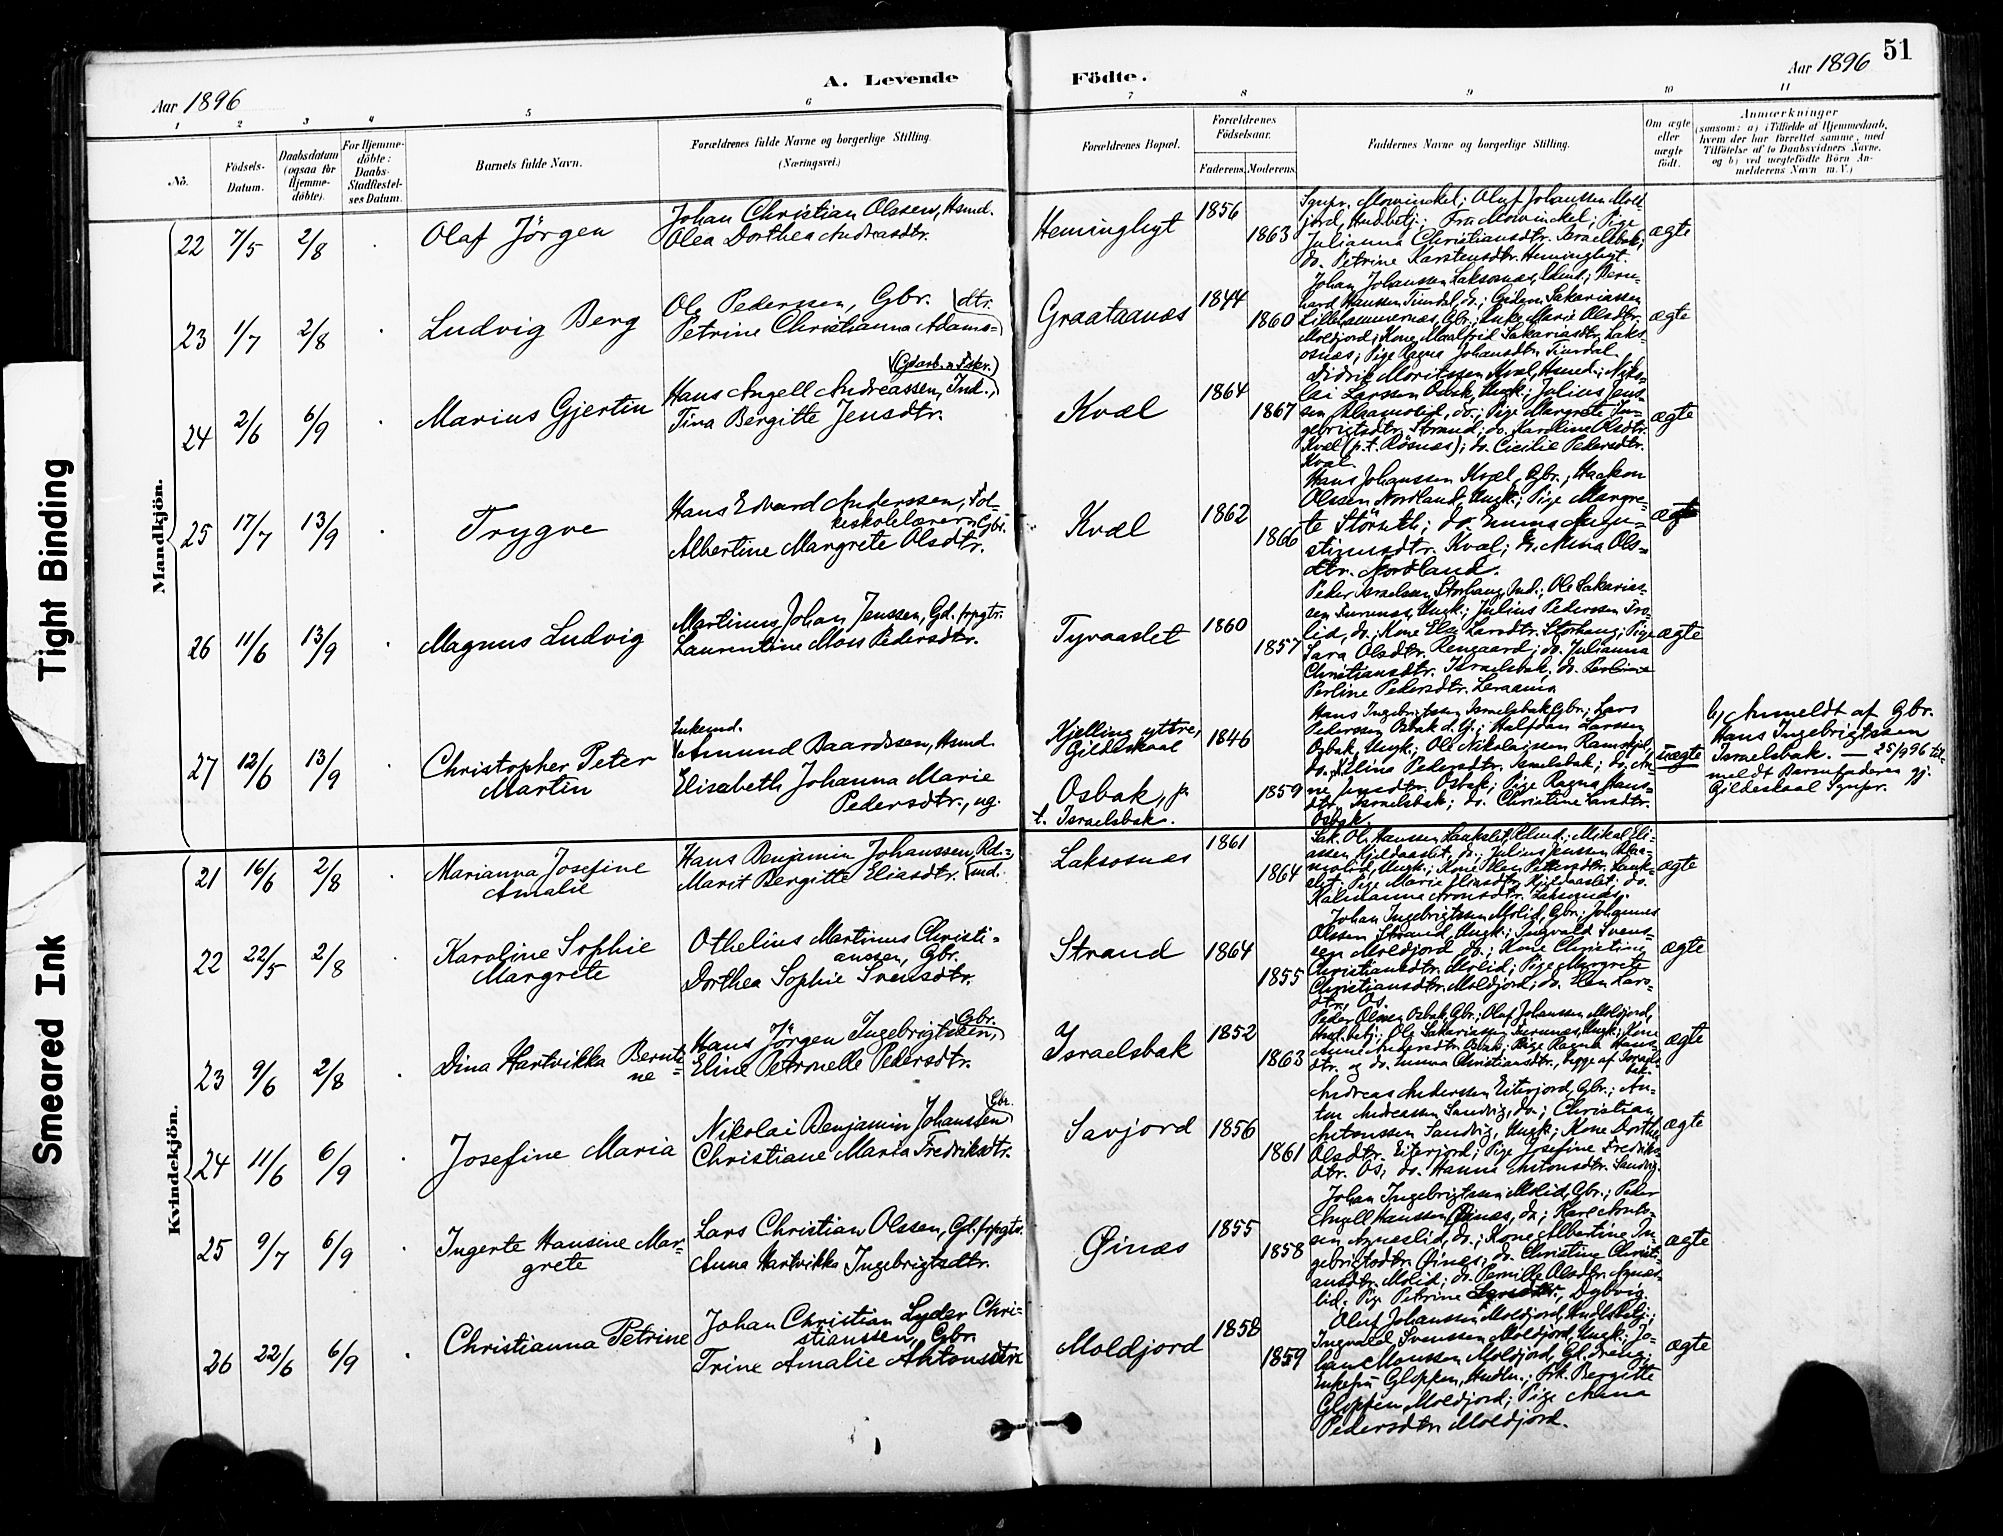 51
A. Levende
Födte.
Aar 1896
Aar 1896
1 2 3 4 5 6 7 8 9 10 11
No.
Födsels-Datum.
Daabsdatum (ogsaa for Hjemmedöbte).
For Hjemmedöbte: Daabs-Stadfæstelses Datum.
Barnets fulde Navn.
Forældrenes fulde Navne og borgerlige Stilling. (Næringsvei.)
Forældrenes Bopæl.
Forældrenes Födselsaar.
Faderens. Moderens.
Faddernes Navne og borgerlige Stilling.
Om ægte eller uægte födt.
Anmærkninger
(saasom: a) i Tilfælde af Hjemmedaab, hvem der har forrettet samme, med Tilföielse af to Daabsvidners Navne, og b) ved uægtefödte Börn Anmelderens Navn m. V.)
Tight Binding
Smeared Ink
Mandkjön.
22 7/5 2/8 Olaf Jörgen
Johan Christian Olssen, Hsmd.
Olea Dorthea Andreasdtr.
Hemingligt 1856 1863
Sgnpr. Mowinckel; Oluf Johanssen Mold-
jord, Hndbetj.; Fru Mowinckel; Pige
Julianna Christiansdtr. Israelsbak;
do. Petrine Karstensdtr. Hemingligt.
ægte
23 1/7 2/8 Ludvig Berg
Ole Pederssen, Gbr. (dtr.
Petrine Christianna Adams-)
Graataanæs 1844 1860
Johan Johanssen Laksosnæs, Rdmd.; Bern-
hard Hanssen Tindal, do.; Gideon Sakariassen
Lillehammernæs, Gbr.; Enke Marie Olsdtr.
Moldjord; Kone Maalfrid Sakariasdtr. Laks-
osnæs; Pige Ragna Johansdtr.
ægte
24 2/6 6/9 Marius Gjertin
(Gdarb. & Fskr.)
Hans Angell Andreassen, Ind.,
Tina Bergitte Jensdtr.
Kvæl 1864 1867
Didrik Moritssen Kvæl, Hsmd.; Niko-
lai Larssen Osbak, Ungk.; Julius Jens-
sen Blaamolid, do.; Pige Margrete In-
gebrigtsdtr. Strand; do. Karoline Olsdtr.
Kvæl (p. t. Rösnæs); do. Cicilie Pedersdtr.
Kvæl.
ægte
25 17/7 13/9 Trygve
Hans Edvard Anderssen, Fol-
keskolelærer & Gbr.
Albertine Margrete Olsdtr.
Kvæl 1862 1866
Hans Johanssen Kvæl, Gbr.; Haakon
Olssen Nordland, Ungk.; Pige Margre-
te Störseth; do. Emma Augu-
stinusdtr. Kvæl; do. Anna Ols-
dtr. Nordland.
ægte
26 11/6 13/9 Magnus Ludvig
Martinus Johan Jenssen, Gd. frpgtr.
Laurentine Mois Pedersdtr.
Tyvaaslet 1860 1857
Peder Israelsen Storhaug, Ind.; Ole Sakarias-
sen Furunæs, Ungk.; Julius Pederssen
lid, do.; Kone Elen Larsdtr. Storhaug; Pige
Sara Olsdtr. Rengaard; do. Julianna
Christiansdtr. Israelsbak; do. Perline
Perline Pedersdtr.
ægte
27 12/6 13/9 Christopher Peter
Martin
Enkemd.
Amund Baardssen, Hsmd.
Elisabeth Johanna Marie
Pedersdtr., ug.
Kjelling yttre,
Gildeskaal
Osbak, p.
t. Israelsbak.
1846 1859
Hans Ingebrigtssen Israelsbak, Gbr.; Lars
Pederssen Osbak, d. G.; Halfdan Larssen
Osbak, Ungk.; Ole Nikolaissen Ramskjel,
do.; Elina Pedersdtr. Israelsbak; do. An-
ne Jensdtr. Osbak; Pige Ragna Hans-
dtr. Israelsbak; do. Christine Larsdtr.
Osbak.
uægte
b) Anmeldt af Gbr.
Hans Ingebrigtssen
Israelsbak. — 25/9 96 til-
meldt Barnefaderen gj.
Gildeskaal Sgnpr.
Kvindekjön.
21 16/6 2/8 Marianna Josefine
Amalie
Hans Benjamin Johanssen, Rd-
Marit Bergitte Eliasdtr. (md.
Laksosnæs 1861 1864
Sak. Ol. Hanssen Laukslet, Rdmd.; Mikal Eli-
assen Kjeldaaslet, do.; Julius Jenssen Blaa-
molid, Ungk.; Kone Elen Pettersdtr. Lauk-
slet; Pige Marie Eliasdtr. Kjeldaaslet; do.
Kalmanna Aronsdtr. Laksosnæs.
ægte
22 22/5 2/8 Karoline Sophie
Margrete
Othelius Martinus Christi-
anssen, Gbr.
Dorthea Sophie Svensdtr.
Strand 1864 1855
Johan Ingebrigtssen Molid, Gbr.; Johannes
Olssen Strand, Ungk.; Ingvald Svens-
sen Moldjord, do.; Kone Christine
Christiansdtr. Molid; Pige Margrete
Christiansdtr. Moldjord; do. Elen Lars-
dtr. Os.
ægte
23 9/6 2/8 Dina Hartvikka Bernti-
ne
Hans Jörgen Ingebrigtssen, Gbr.
Eline Petronelle Pedersdtr.
Israelsbak 1852 1863
Peder Olssen Osbak, Gbr.; Oluf Johanssen Moldjord,
Hndl. betj.; Ole Sakariassen Furunæs, Ungk.; Kone
Anne Andersdtr. Osbak; Pige Ragna Hans-
dtr. og do. Emma Christiansdtr., begge af Israels-
bak.
ægte
24 11/6 6/9 Josefine Maria
Nikolai Benjamin Johanssen (Gbr.
Christiane Marta Fredriksdtr.
Savjord 1856 1861
Andreas Anderssen Eiterjord, Gbr.; An-
ton Andreassen Sandvig, do.; Christian
Antonssen Sandvig, Ungk.; Kone Dorthe
Olsdtr. Eiterjord; Pige Josefine Fredriks-
dtr. Os; do. Hanna Antonsdtr. Sandvig.
ægte
25 9/7 6/9 Ingerte Hansine Mar-
grete
Lars Christian Olssen, Gd. frpgtr.
Anna Hartvikka Ingebrigtsdtr.
Øinæs 1855 1858
Johan Ingebrigtssen Molid, Gbr.; Peder
Angell Hanssen Øinæs, do.; Karl
sen Agnæslid, do.; Kone Albertine In-
gebrigtsdtr. Øinæs; do. Christine Christi-
ansdtr. Molid; do. Pernille Olsdtr. Agnæs-
lid; Pige Petrine Larsdtr., Dybvig.
ægte
26 22/6 6/9 Christianna Petrine
Johan Christian Lyder Chri-
stianssen, Gbr.
Trine Amalie Antonsdtr.
Moldjord 1858 1859
Oluf Johanssen Moldjord, Hndlsbetj.;
Ingvald Svenssen Moldjord, Ungk.; Jo-
han Monssen Moldjord, Gd. dreng;
Enkefru Gloppen, Hndlr.; Frk. Bergitte
Gloppen, Moldjord; Pige Anna
Pedersdtr. Moldjord.
ægte